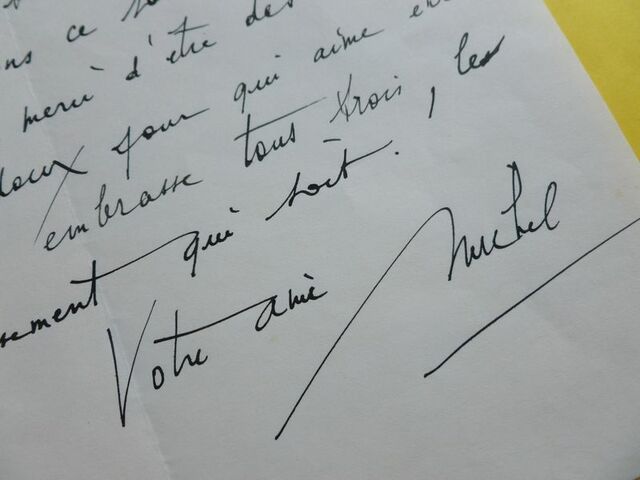 ns ce
merci d'être des
doux pour qui aime
embrasse tous trois, les
sement qui soit.
Votre ami Michel